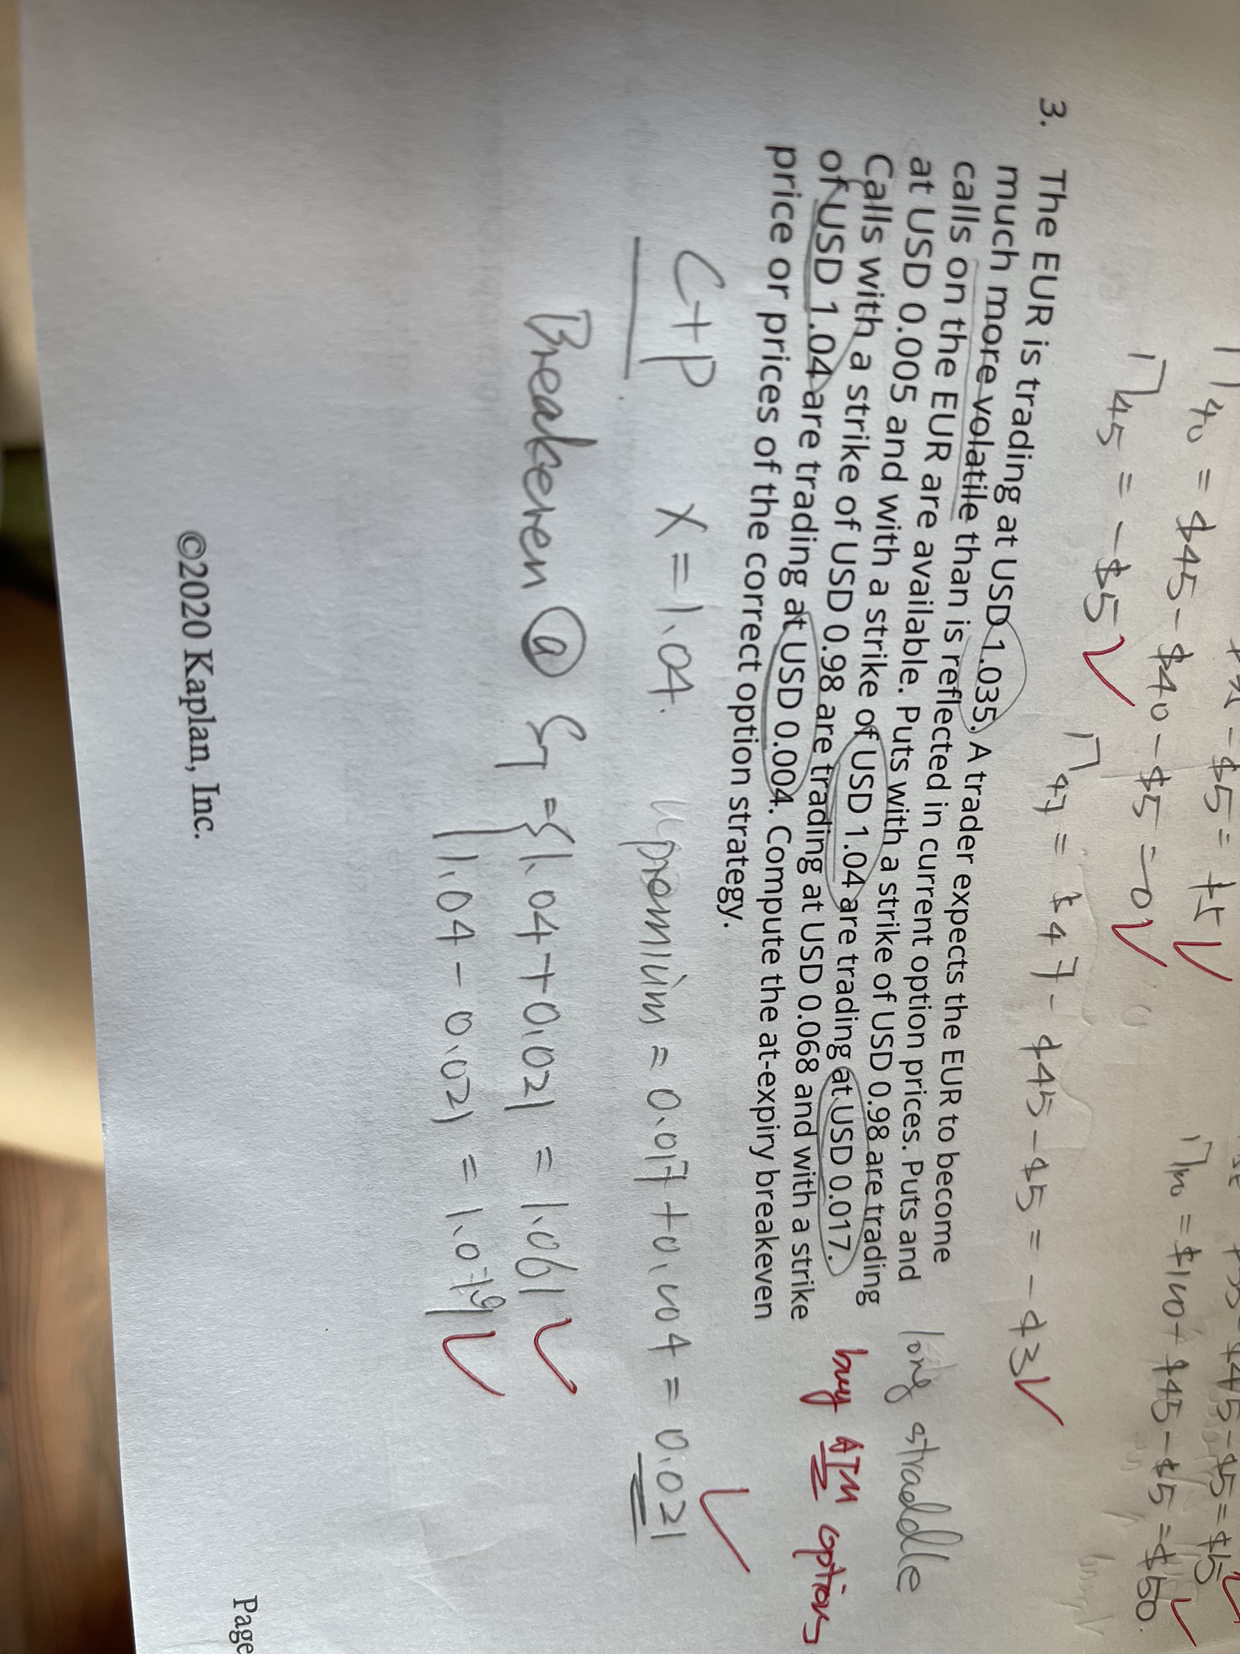 +5 - $5 = +5
Π40 = $45 - $40 - $5 = 0
Π100 = $100 + $45 - $5 = $50.
Π45 = -$5
Π47 = $47 - $45 - $5 = -$3
3. The EUR is trading at USD 1.035. A trader expects the EUR to become
much more volatile than is reflected in current option prices. Puts and
calls on the EUR are available. Puts with a strike of USD 0.98 are trading
at USD 0.005 and with a strike of USD 1.04 are trading at USD 0.017.
Calls with a strike of USD 0.98 are trading at USD 0.068 and with a strike
of USD 1.04 are trading at USD 0.004. Compute the at-expiry breakeven
price or prices of the correct option strategy.
long straddle
buy ATM options
C+P X = 1.04. premium = 0.017 + 0.004 = 0.021
Breakeven @ ST = { 1.04 + 0.021 = 1.061
1.04 - 0.021 = 1.019
©2020 Kaplan, Inc.
Page